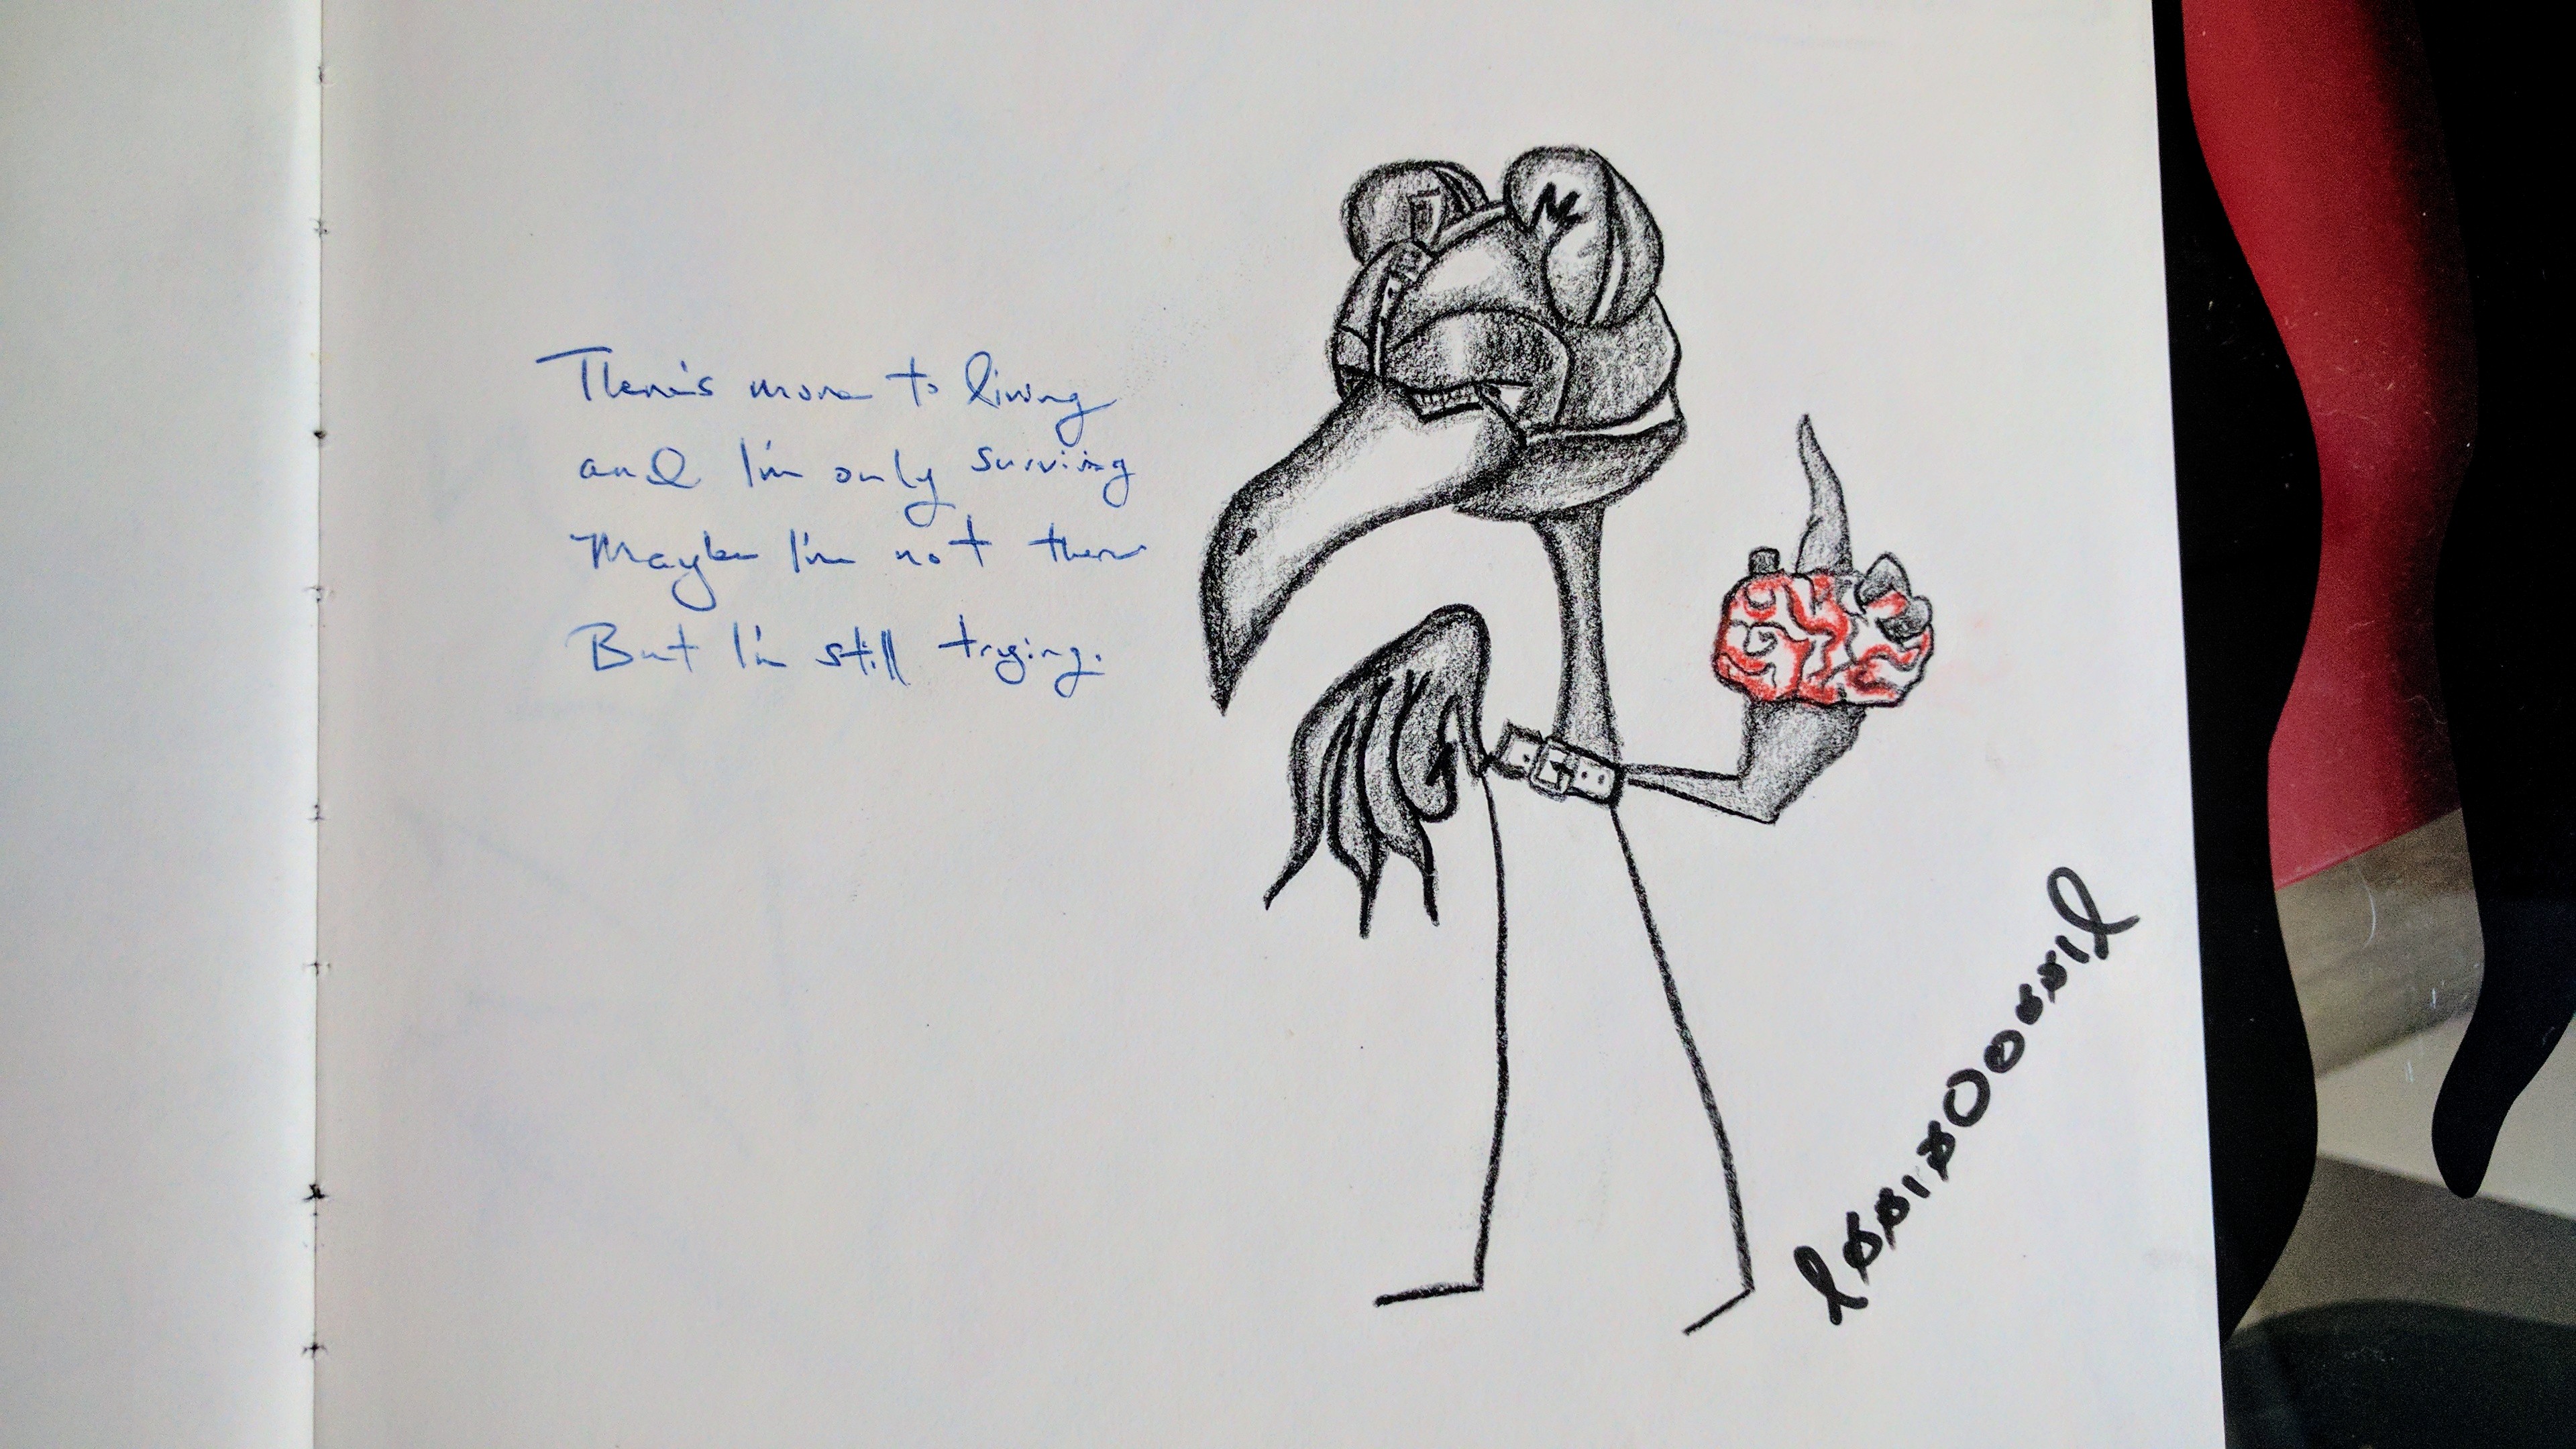 There's more to living
and I'm only surviving
Maybe I'm not there
But I'm still trying.